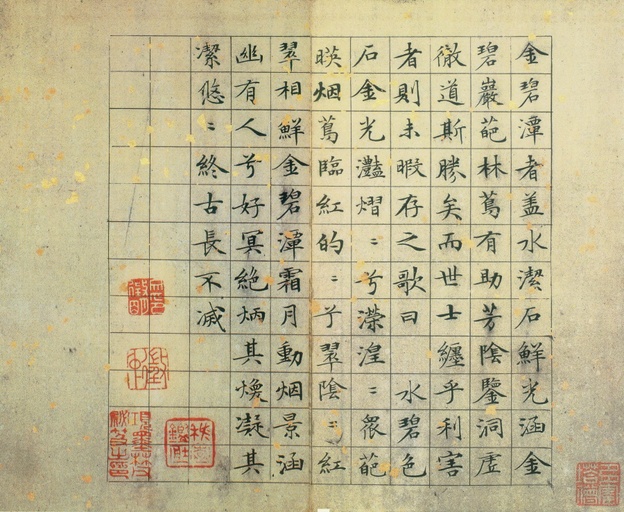 金碧潭者盖水潔石鮮光涵金
碧巖葩林蔦有助芳陰鑒洞虛
徹道斯勝矣而世士纏乎利害
者則未暇存之歌曰 水碧色
石金光灩熠〻兮濚湟〻衆葩
暎烟蔦臨紅的〻兮翠陰〻紅
翠相鮮金碧潭霜月動烟景涵
幽有人兮好冥絶炳其煥凝其
潔悠〻終古長不滅